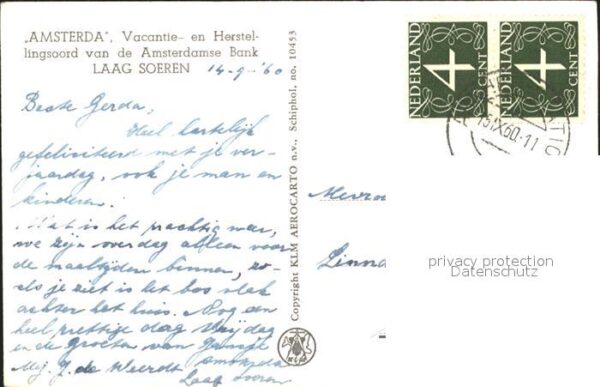 „AMSTERDA", Vacantie- en Herstel-
lingsoord van de Amsterdamse Bank
LAAG SOEREN 14-9-'60
Beste Gerda,
Heel hartelijk
gefeliciteerd met je ver-
jaardag, ook je man en
kinderen.
Wat is het prachtig weer,
we zijn overdag alleen voor
de maaltijden binnen, zo-
als je ziet is het bos vlak
achter het huis. Nog een
heel prettige dag Vrijdag
en de groeten van
Mej. J. de Weerdt Amsterda
Laag Soeren
Copyright KLM AEROCARTO n.v., Schiphol, no. 10453
NEDERLAND 4 CENT
NEDERLAND 4 CENT
IX60.-11
Mevro
Linna
privacy protection
Datenschutz